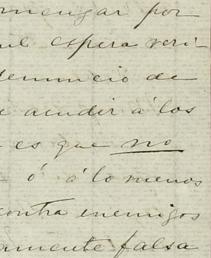 mengar por
espera veri-
denuncio de
e acudir á los
es que no
ó á lo menos
contra enemigos
amente falsa